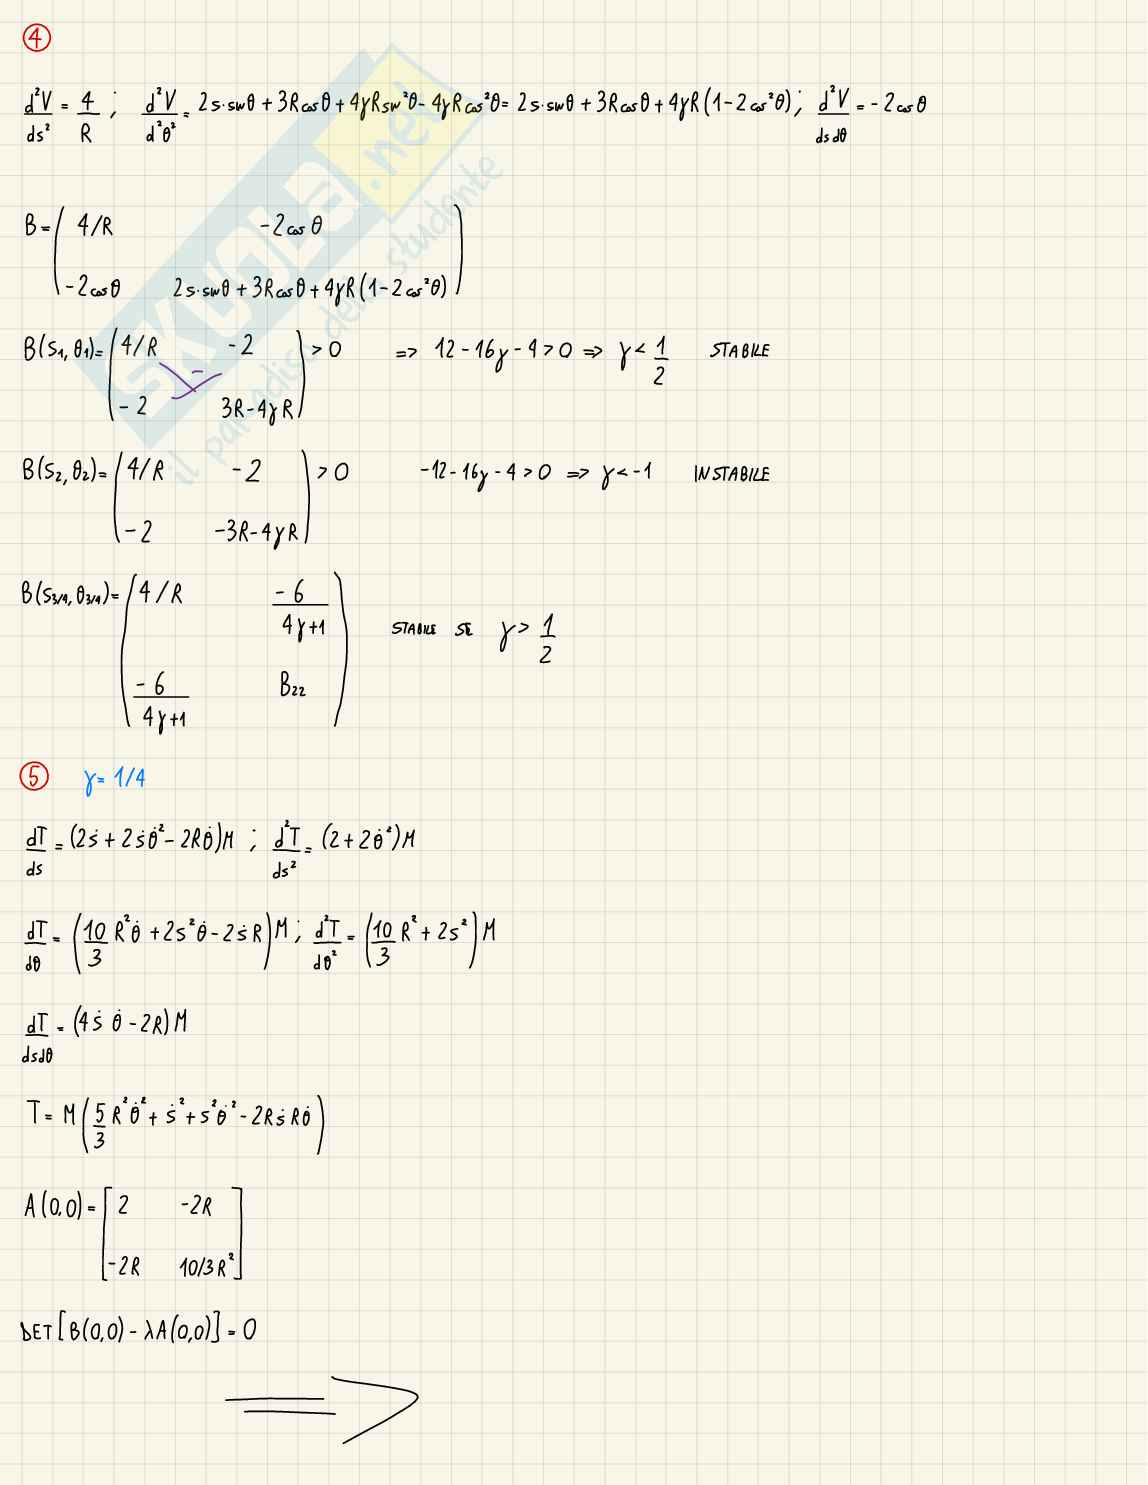 ④
d²V/ds² = 4/R ; d²V/d²θ² = 2s·sινθ + 3R cos θ + 4γR sιν²θ - 4γR cos²θ = 2s·sινθ + 3R cos θ + 4γR (1 - 2 cos²θ) ; d²V/dsdθ = - 2 cos θ
B = ( 4/R   -2 cos θ
-2 cos θ   2s·sινθ + 3R cos θ + 4γR (1 - 2 cos²θ) )
B(s₁, θ₁) = ( 4/R   -2
-2   3R - 4γR ) > 0 => 12 - 16γ - 4 > 0 => γ < 1/2 STABILE
B(s₂, θ₂) = ( 4/R   -2
-2   -3R - 4γR ) > 0 -12 - 16γ - 4 > 0 => γ < -1 INSTABILE
B(s₃/₄, θ₃/₄) = ( 4/R   -6/4γ+1
-6/4γ+1   B₂₂ ) STABILE SE γ > 1/2
⑤ γ = 1/4
dT/ds = (2ṡ + 2ṡθ̇² - 2Rθ̇)M ; d²T/ds² = (2 + 2θ̇²)M
dT/dθ = (10/3 R²θ̇ + 2s²θ̇ - 2ṡR)M ; d²T/dθ² = (10/3 R² + 2s²)M
dT/dsdθ = (4ṡ θ̇ - 2R)M
T = M(5/3 R²θ̇² + ṡ² + s²θ̇² - 2Rṡ Rθ̇)
A(0,0) = [ 2   -2R
-2R   10/3R² ]
DET [B(0,0) - λA(0,0)] = 0
SKUOLA.net
il paradiso dello studente